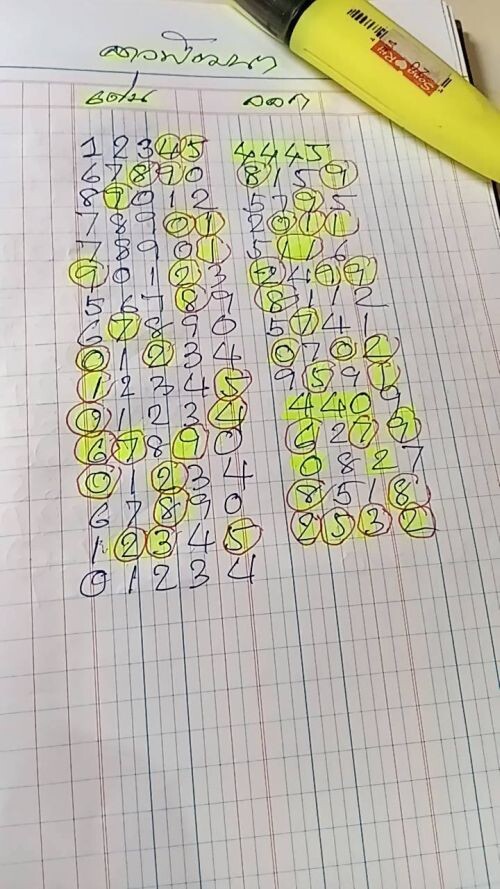 ลาวพัฒนา
เด่น ออก
12345 4445
67890 8159
89012 5795
78901 2011
78901 5116
90123 2499
56789 8112
67890 5741
01234 0702
12345 9591
01234 4409
67890 6279
01234 0827
67890 8518
12345 2532
01234